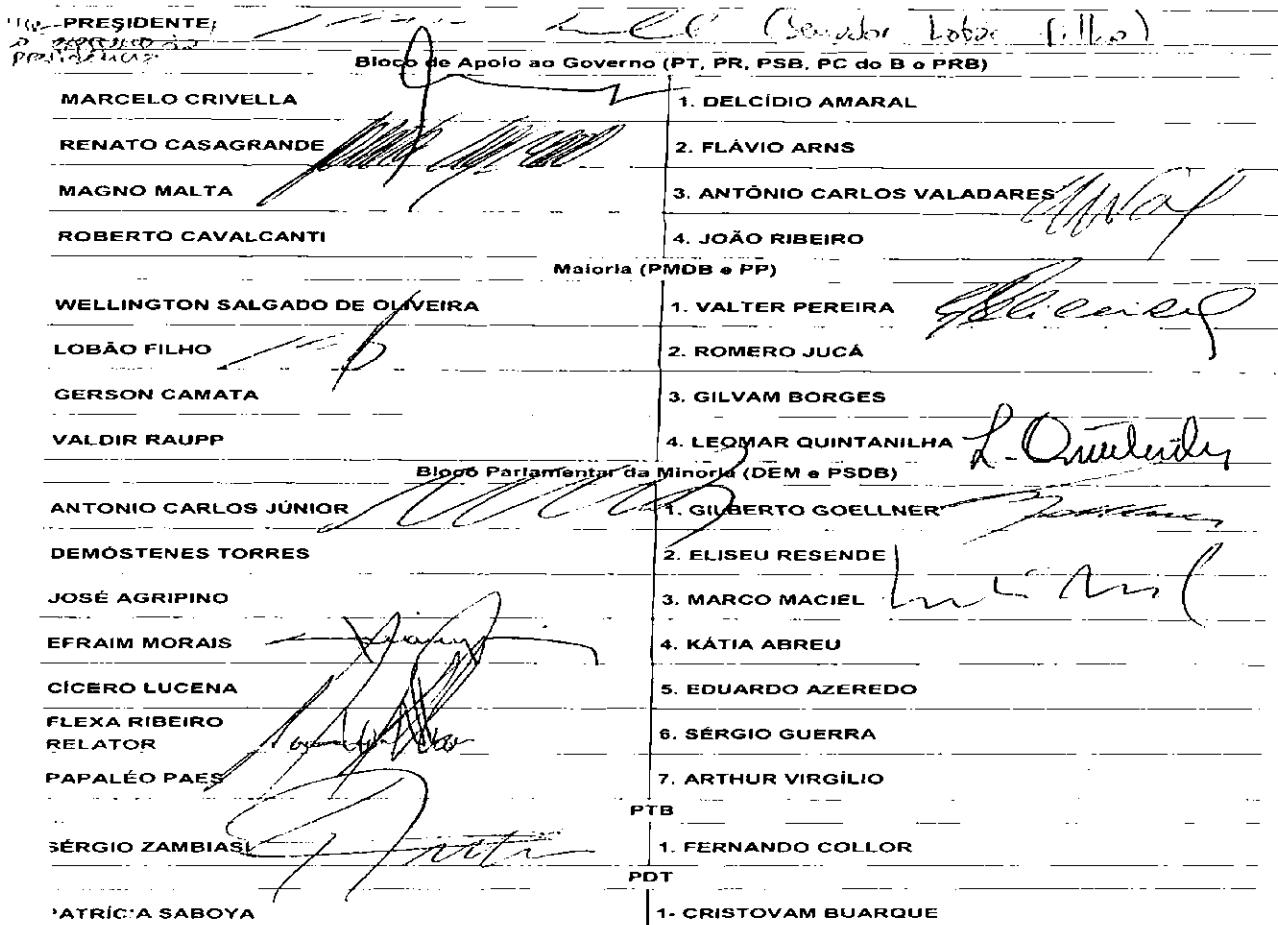 PRESIDENTE
presidência (Senador Lobão Filho)
Bloco de Apoio ao Governo (PT, PR, PSB, PC do B e PRB)
MARCELO CRIVELLA 1. DELCÍDIO AMARAL
RENATO CASAGRANDE 2. FLÁVIO ARNS
MAGNO MALTA 3. ANTÔNIO CARLOS VALADARES
ROBERTO CAVALCANTI 4. JOÃO RIBEIRO
Maioria (PMDB e PP)
WELLINGTON SALGADO DE OLIVEIRA 1. VALTER PEREIRA
LOBÃO FILHO 2. ROMERO JUCÁ
GERSON CAMATA 3. GILVAM BORGES
VALDIR RAUPP 4. LEOMAR QUINTANILHA L. Quintanilha
Bloco Parlamentar da Minoria (DEM e PSDB)
ANTONIO CARLOS JÚNIOR 1. GILBERTO GOELLNER
DEMÓSTENES TORRES 2. ELISEU RESENDE
JOSÉ AGRIPINO 3. MARCO MACIEL
EFRAIM MORAIS 4. KÁTIA ABREU
CÍCERO LUCENA 5. EDUARDO AZEREDO
FLEXA RIBEIRO
RELATOR 6. SÉRGIO GUERRA
PAPALÉO PAES 7. ARTHUR VIRGÍLIO
PTB
SÉRGIO ZAMBIASI 1. FERNANDO COLLOR
PDT
PATRÍCIA SABOYA 1- CRISTOVAM BUARQUE